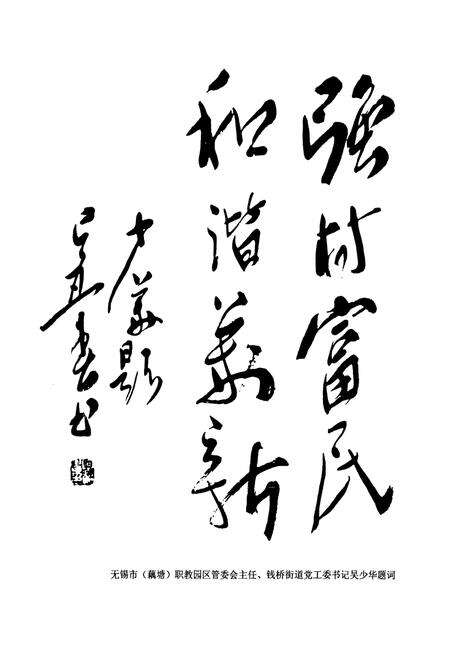 强村富民
和谐萬新
少華題
己丑春书
无锡市（藕塘）职教园区管委会主任、钱桥街道党工委书记吴少华题词